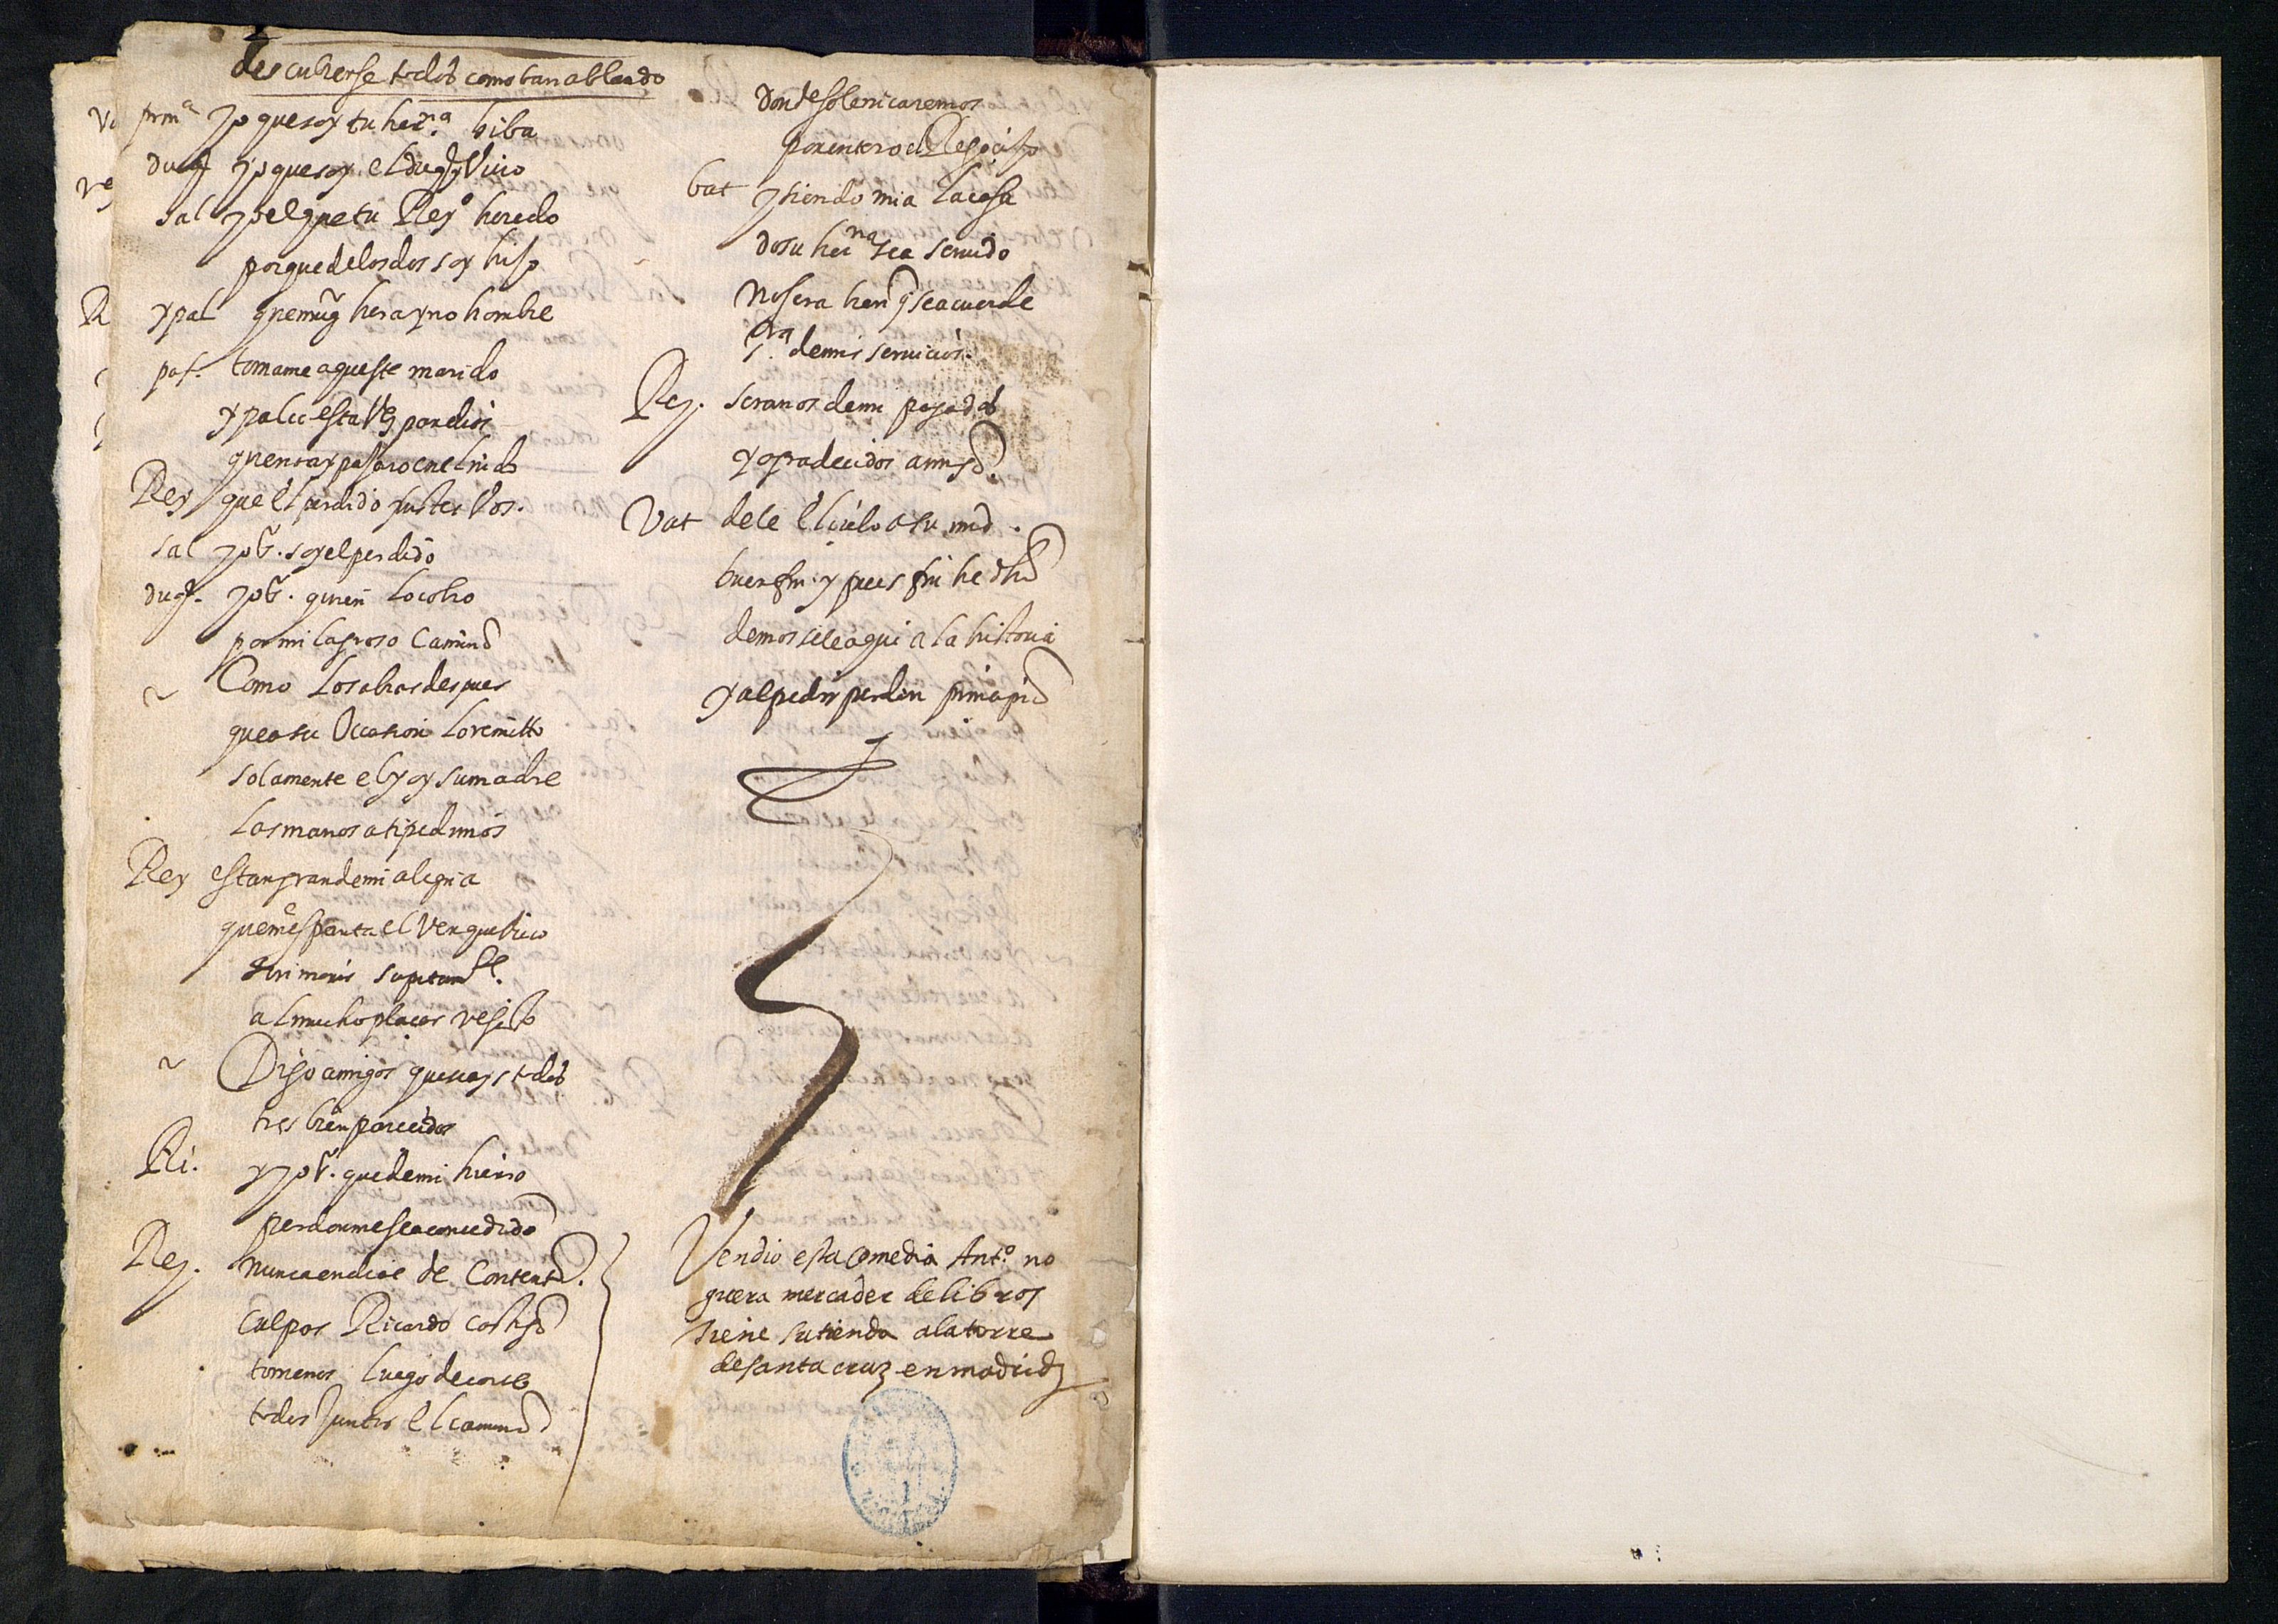 descubrense todos como ban ablando
prinª yo que soy tu herᵐª biba
duq yo que soy el duq y vivo
sal yo el que tu Reyº heredo
porque de los dos soy hijo
ypal que mug hera y no hombre
pas. tomame aqueste marido
ypal u esta vez por dios
que no ay pajaro en el nido
Rey que el perdido fustes vos.
sal yo sr. soy el perdido
duq. yo sr. quien lo cobro
por milagroso camino
Como lo sabras despues
que a su occasion lo remitto
solamente el y oy su madre
las manos a ti pedimos
Rey es tan grande mi alegria
que me espanta el ver que vivo
sin morir supitamte.
al mucho placer resisto
Digo amigos que seays todos
tres bien parecidos
Ri. y yo sr. que de mi hierro
perdon me sea concedido
Rey. nunca en dias de contento.
culpas Ricardo castigo
tomenos luego de corte
todos juntos el camino
donde solenicaremos
por entero el Regocijo
bat y siendo mia la cassa
do su herᵐª sea servido
no sera bien q se acuerde
sʳª de mis servicios.
Rey. seran os de mi pagados
y agradecidos amigo.
Vat dele el cielo a su md.
buen fin. y pues fin he dho
demosele aqui a la historia
y al pedir perdon principio
Vendio esta comedia Antº. no
guera mercader de libros
tiene su tienda a la torre
de santa cruz en madrid